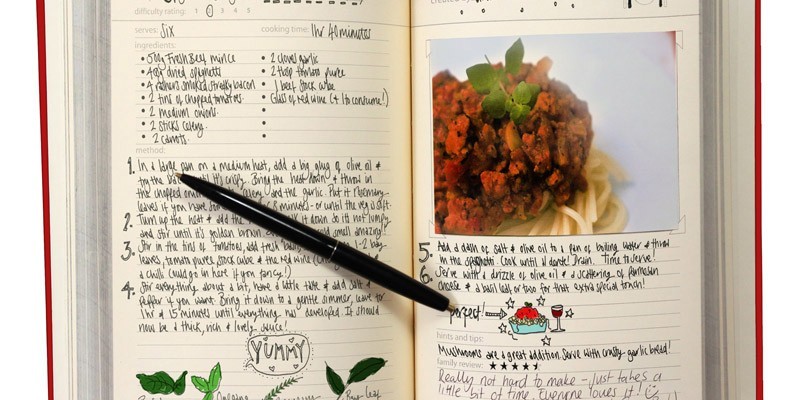 difficulty rating: 1 2 3 4 5
serves: Six
cooking time: 1hr 40minutes
ingredients:
• 500g Fresh Beef mince
• 400g dried spaghetti
• 4 rashers smoked streaky bacon
• 2 tins of chopped tomatoes
• 2 medium onions.
• 2 sticks celery.
• 2 carrots.
• 2 cloves garlic
• 2 tbsp tomato puree
• 1 beef stock cube
• Glass of red wine (+ 1 to consume!)
method:
1. In a large pan on a medium heat, add a big glug of olive oil &
fry the until it's crispy. Bring the heat down & throw in
the chopped and the garlic. Put rosemary
leaves if you have minutes - or until the veg is soft.
2. Turn up the heat & add the it down so it's not lumpy
and stir until it's golden brown. smell amazing!
3. Stir in the tins of tomatoes, add fresh 1-2 bay
leaves, tomato puree, stock cube & the red wine
a chilli could go in here if you fancy!)
4. Stir everything about a bit, have a little taste & add salt &
pepper if you want. Bring it down to a gentle simmer, leave for
1hr & 15 minutes until everything has developed. It should
now be a thick, rich & lovely sauce!
YUMMY
Oregano
Bay-leaf
5. Add a dash of salt & olive oil to a pan of boiling water & throw
in the spaghetti. Cook until al dente! Drain. Time to serve!
6. Serve with a drizzle of olive oil & a scattering of parmesan
cheese & a basil leaf or two for that extra special touch!
perfect!
hints and tips:
Mushrooms are a great addition. Serve with crusty garlic bread!
family review:
Really not hard to make - just takes a
little bit of time. Everyone loves it!